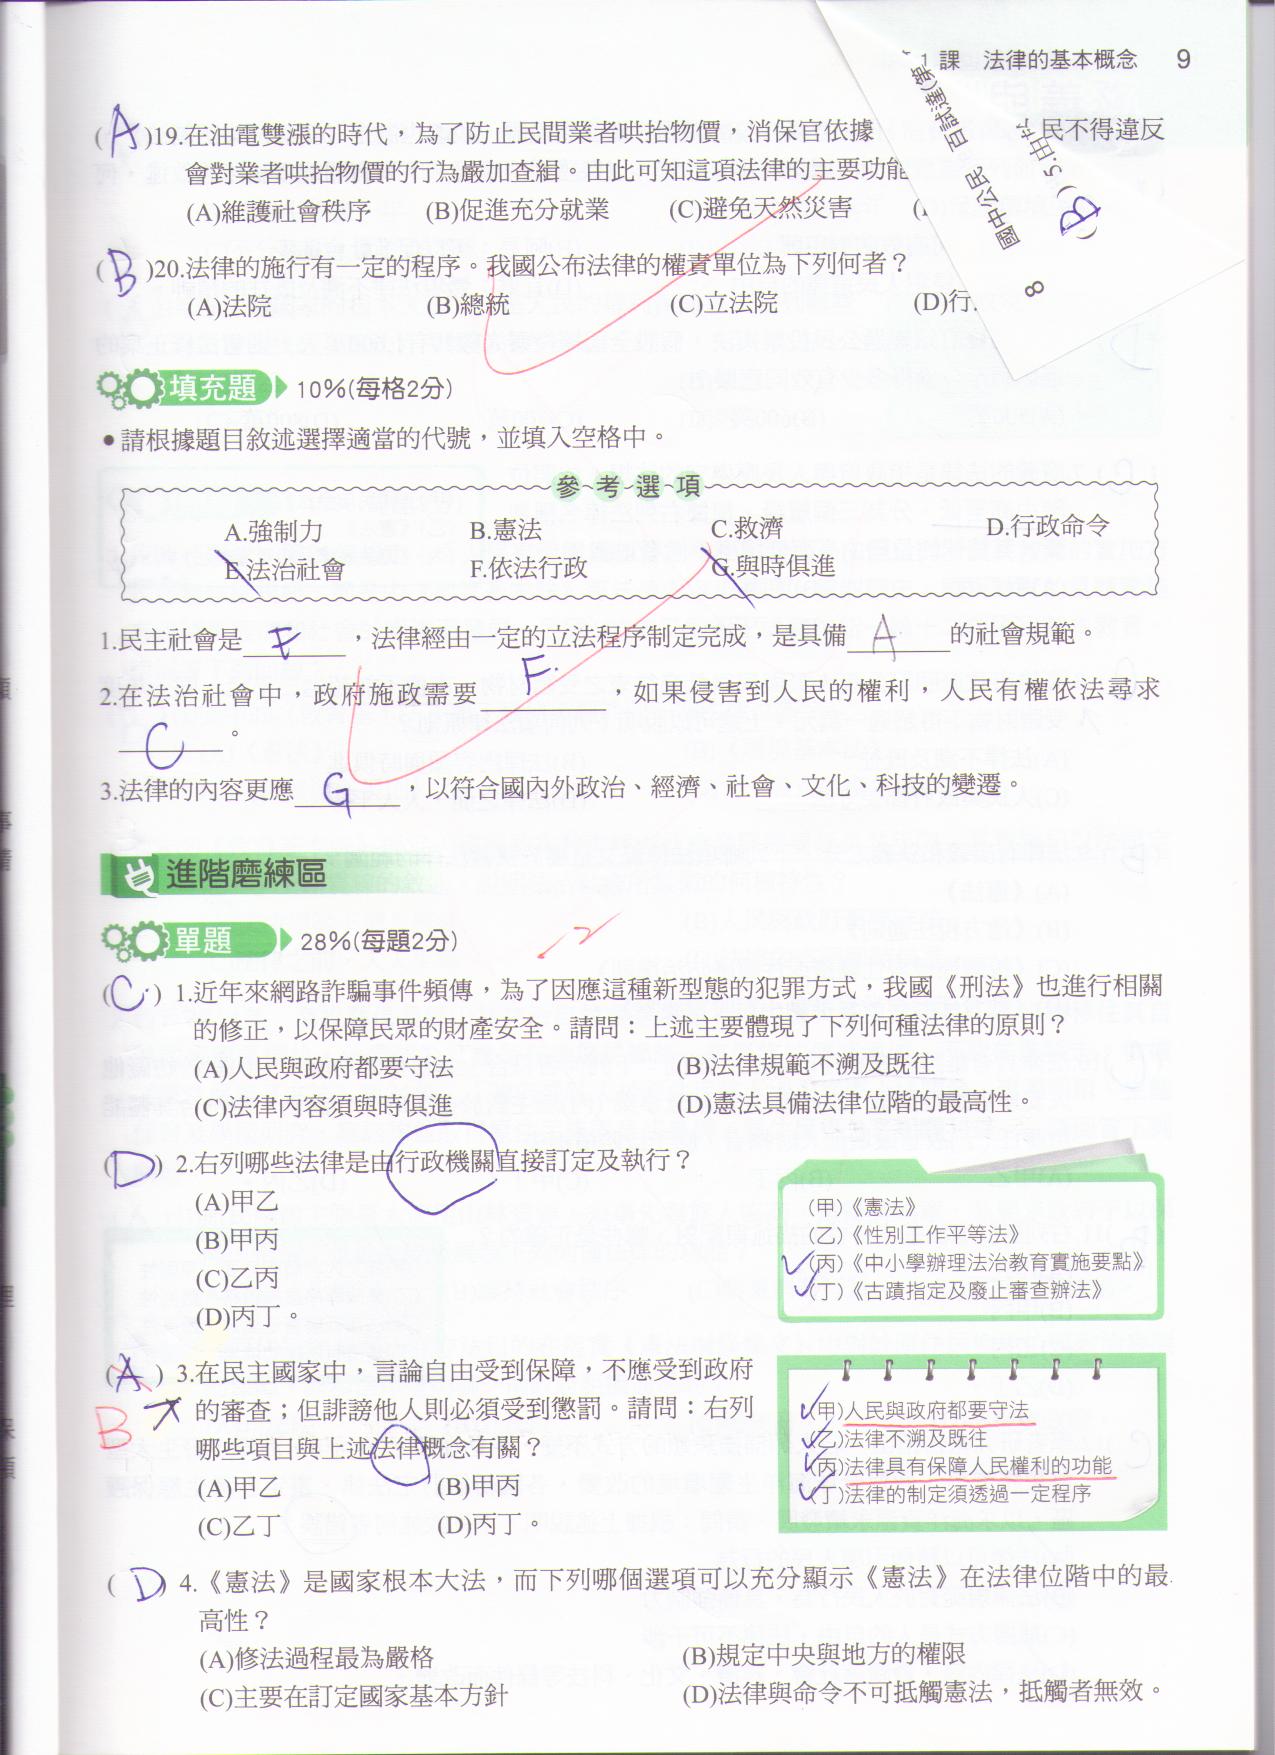 1 課 法律的基本概念 9
8 國中公民 百試達(第
(B) 5.中
(A)19.在油電雙漲的時代,為了防止民間業者哄抬物價,消保官依據
民不得違反
會對業者哄抬物價的行為嚴加查緝。由此可知這項法律的主要功能
(A)維護社會秩序 (B)促進充分就業 (C)避免天然災害
(B)20.法律的施行有一定的程序。我國公布法律的權責單位為下列何者?
(A)法院 (B)總統 (C)立法院 (D)行
填充題 10%(每格2分)
•請根據題目敘述選擇適當的代號,並填入空格中。
參考選項
A.強制力 B.憲法 C.救濟 D.行政命令
E.法治社會 F.依法行政 G.與時俱進
1.民主社會是 E ,法律經由一定的立法程序制定完成,是具備 A 的社會規範。
2.在法治社會中,政府施政需要 F ,如果侵害到人民的權利,人民有權依法尋求
C 。
3.法律的內容更應 G ,以符合國內外政治、經濟、社會、文化、科技的變遷。
進階磨練區
單題 28%(每題2分) -2
(C) 1.近年來網路詐騙事件頻傳,為了因應這種新型態的犯罪方式,我國《刑法》也進行相關
的修正,以保障民眾的財產安全。請問:上述主要體現了下列何種法律的原則?
(A)人民與政府都要守法 (B)法律規範不溯及既往
(C)法律內容須與時俱進 (D)憲法具備法律位階的最高性。
(D) 2.右列哪些法律是由行政機關直接訂定及執行?
(A)甲乙
(B)甲丙
(C)乙丙
(D)丙丁。
(甲)《憲法》
(乙)《性別工作平等法》
(丙)《中小學辦理法治教育實施要點》
(丁)《古蹟指定及廢止審查辦法》
(A) 3.在民主國家中,言論自由受到保障,不應受到政府
B 的審查;但誹謗他人則必須受到懲罰。請問:右列
哪些項目與上述法律概念有關?
(A)甲乙 (B)甲丙
(C)乙丁 (D)丙丁。
(甲)人民與政府都要守法
(乙)法律不溯及既往
(丙)法律具有保障人民權利的功能
(丁)法律的制定須透過一定程序
(D) 4.《憲法》是國家根本大法,而下列哪個選項可以充分顯示《憲法》在法律位階中的最
高性?
(A)修法過程最為嚴格 (B)規定中央與地方的權限
(C)主要在訂定國家基本方針 (D)法律與命令不可抵觸憲法,抵觸者無效。